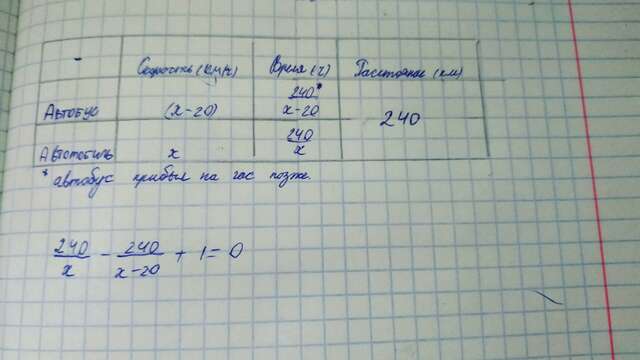 - Скорость (км/ч) Время (ч) Расстояние (км)
Автобус (x-20) 240* / x-20 240
Автомобиль x 240 / x
* автобус прибыл на час позже.
240 / x - 240 / x-20 + 1 = 0